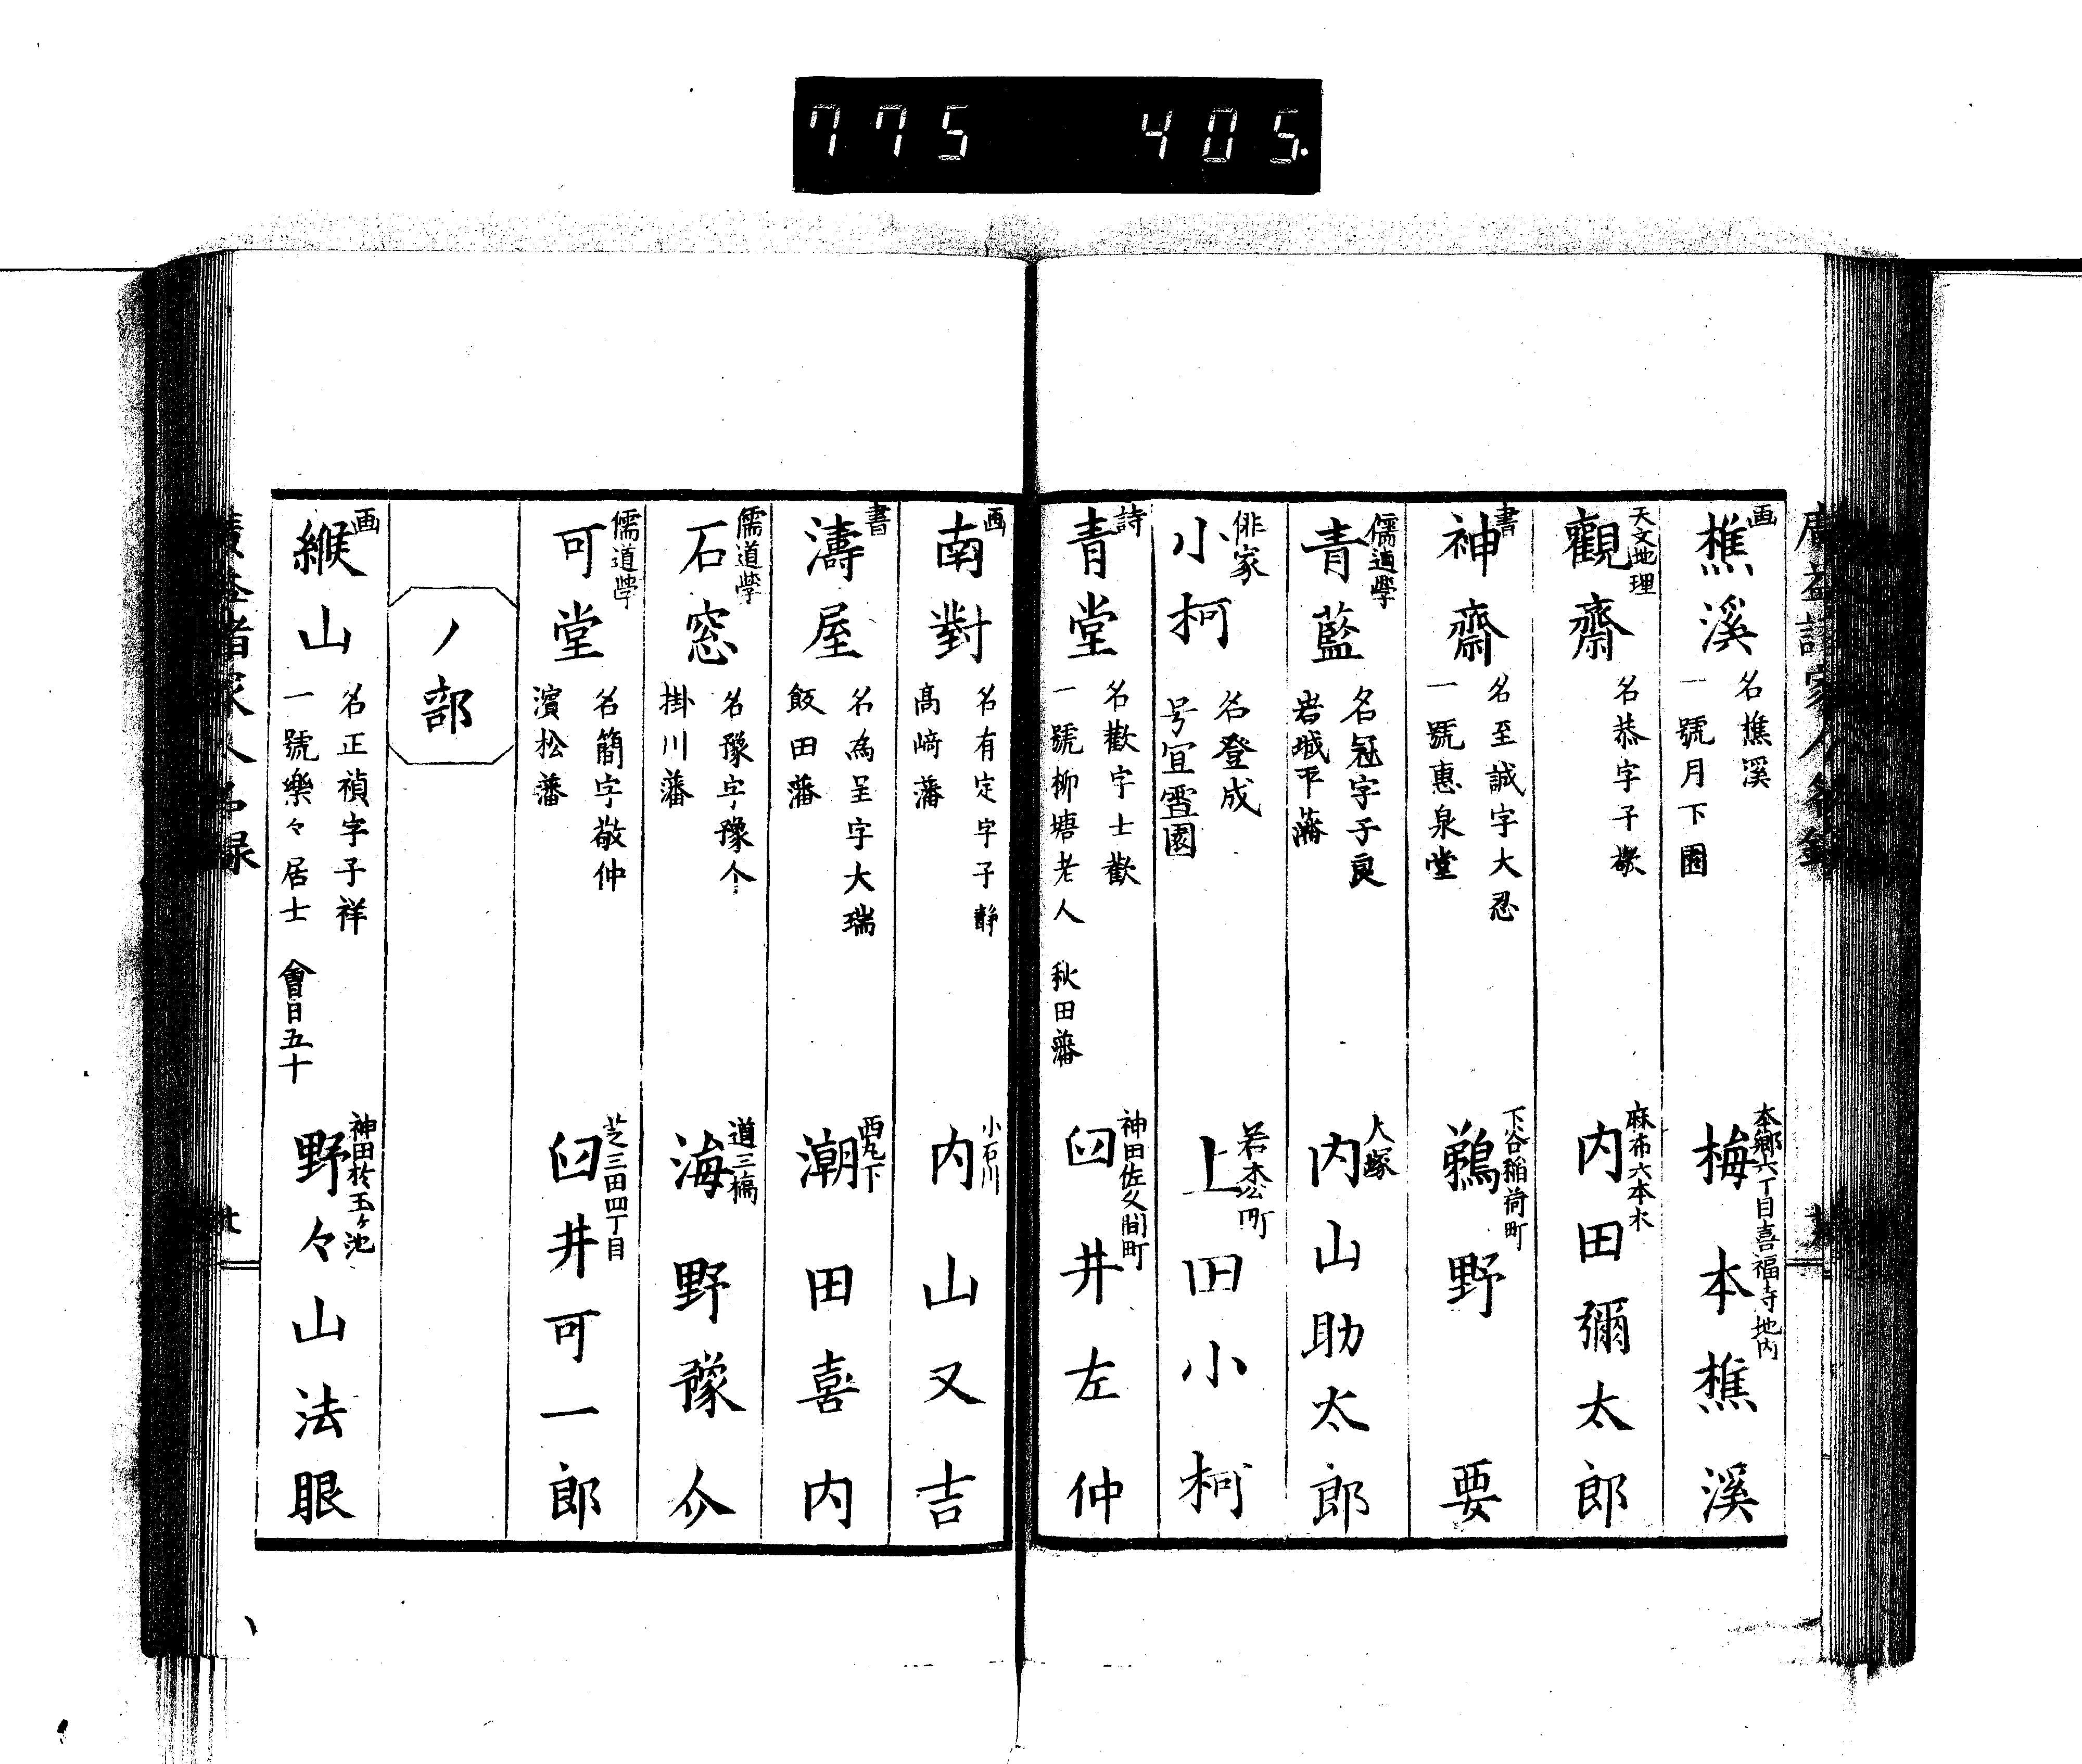 775 405.
画
樵溪
名樵溪
一號月下園
本郷六丁目喜福寺地内
梅本樵溪
天文地理
觀齋
名恭字子
麻布六本木
内田彌太郎
書
神齋
名至誠字大忍
一號惠泉堂
下谷稲荷町
鵜野要
儒道學
青藍
名冠字子良
岩城平藩
大塚
内山助太郎
俳家
小柯
名登成
号宜雪園
若木公町
上田小柯
詩
青堂
名歡字士歡
一號柳塘老人 秋田藩
神田佐久間町
臼井左仲
画
南對
名有定字子静
高﨑藩
小石川
内山又吉
書
濤屋
名為呈字大瑞
飯田藩
西丸下
潮田喜内
儒道学
石窓
名豫字豫人
掛川藩
道三橋
海野豫介
儒道学
可堂
名簡字敬仲
濱松藩
芝三田四丁目
臼井可一郎
ノ部
画
緱山
名正禎字子祥
一號樂々居士 會日五十
神田於玉ヶ池
野々山法眼